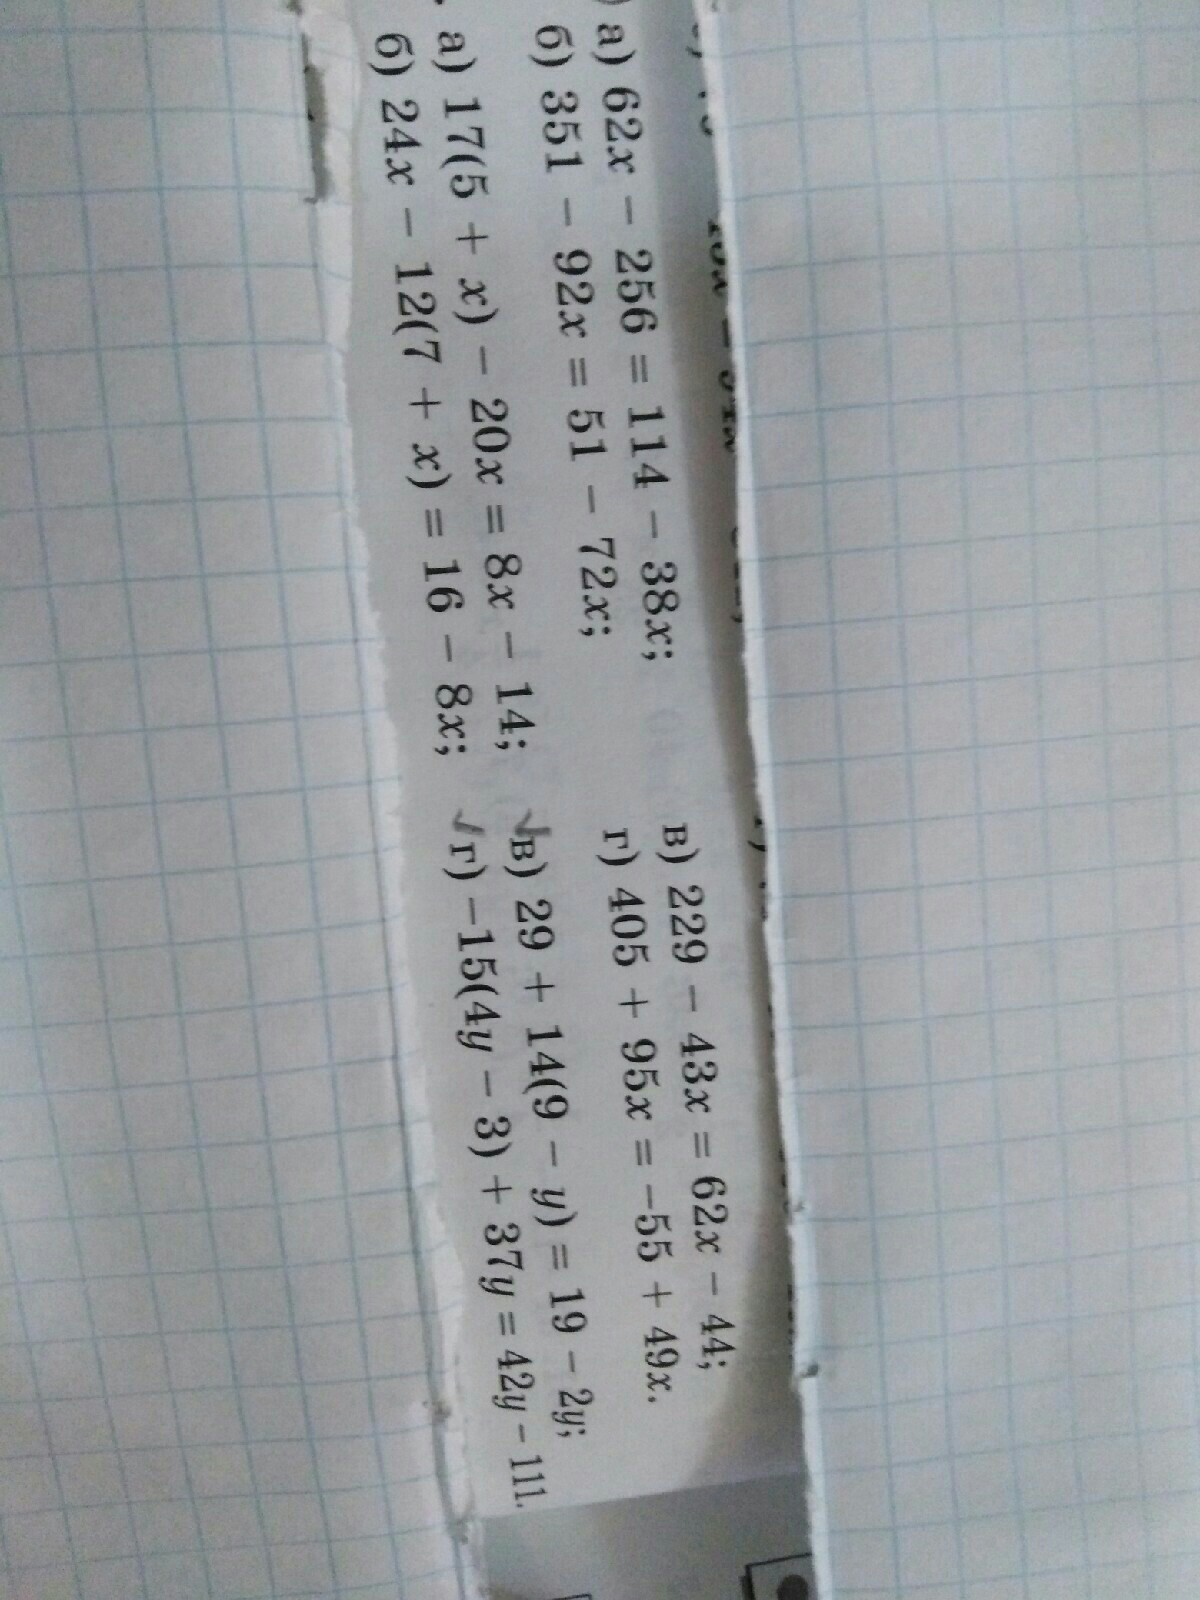 а) 62x − 256 = 114 − 38x; в) 229 − 43x = 62x − 44;
б) 351 − 92x = 51 − 72x; г) 405 + 95x = −55 + 49x.
а) 17(5 + x) − 20x = 8x − 14; √в) 29 + 14(9 − y) = 19 − 2y;
б) 24x − 12(7 + x) = 16 − 8x; √г) −15(4y − 3) + 37y = 42y − 111.